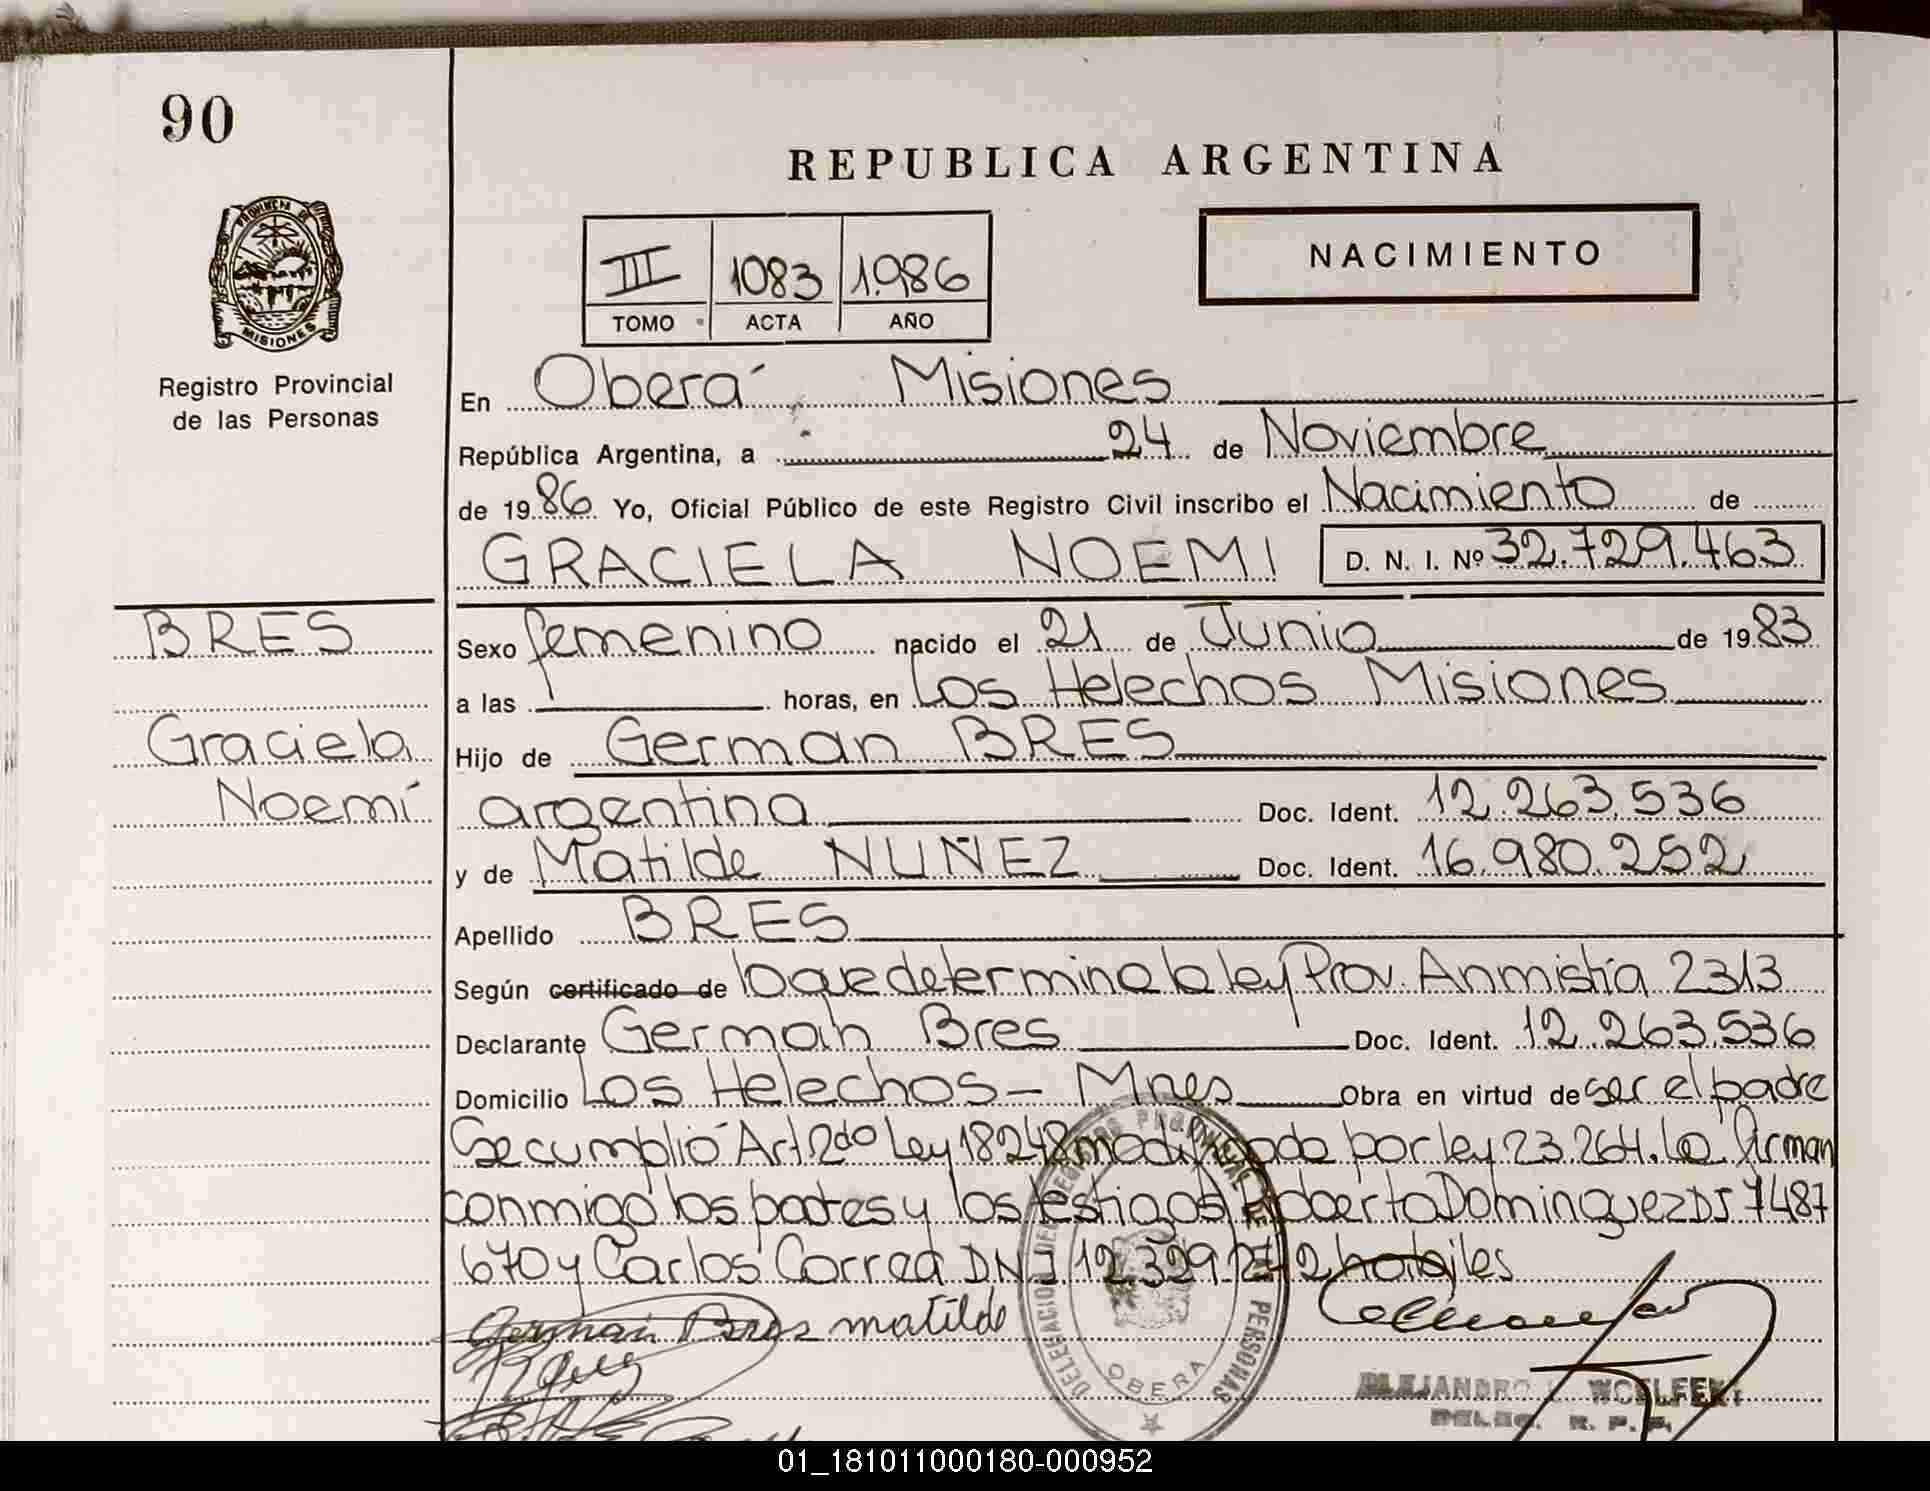 90
REPUBLICA ARGENTINA
PROVINCIA DE
MISIONES
III 1083 1.986
TOMO ACTA AÑO
NACIMIENTO
Registro Provincial
de las Personas
En Oberá Misiones
República Argentina, a 24 de Noviembre
de 1986 Yo, Oficial Público de este Registro Civil inscribo el Nacimiento de
GRACIELA NOEMI D. N. I. Nº 32.729.463
BRES
Graciela
Noemí
Sexo femenino nacido el 21 de Junio de 1983
a las horas, en Los Helechos Misiones
Hijo de German BRES
argentina Doc. Ident. 12.263.536
y de Matilde NUÑEZ Doc. Ident. 16.980.252
Apellido BRES
Según certificado de lo que determina la ley Prov. Anmistía 2313
Declarante German Bres Doc. Ident. 12.263.536
Domicilio Los Helechos - Mnes Obra en virtud de ser el padre
Se cumplió Art. 2do Ley 18248 modificada por ley 23.264. Firman
conmigo los padres y los testigos Roberto Dominguez DI 7487
670 y Carlos Correa DNI 12.329.242 habiles
German Bres matilde
DELEGACION DEL REGISTRO PROVINCIAL DE LAS PERSONAS
OBERA
ALEJANDRO
DELEG. R. P. P.
01_181011000180-000952